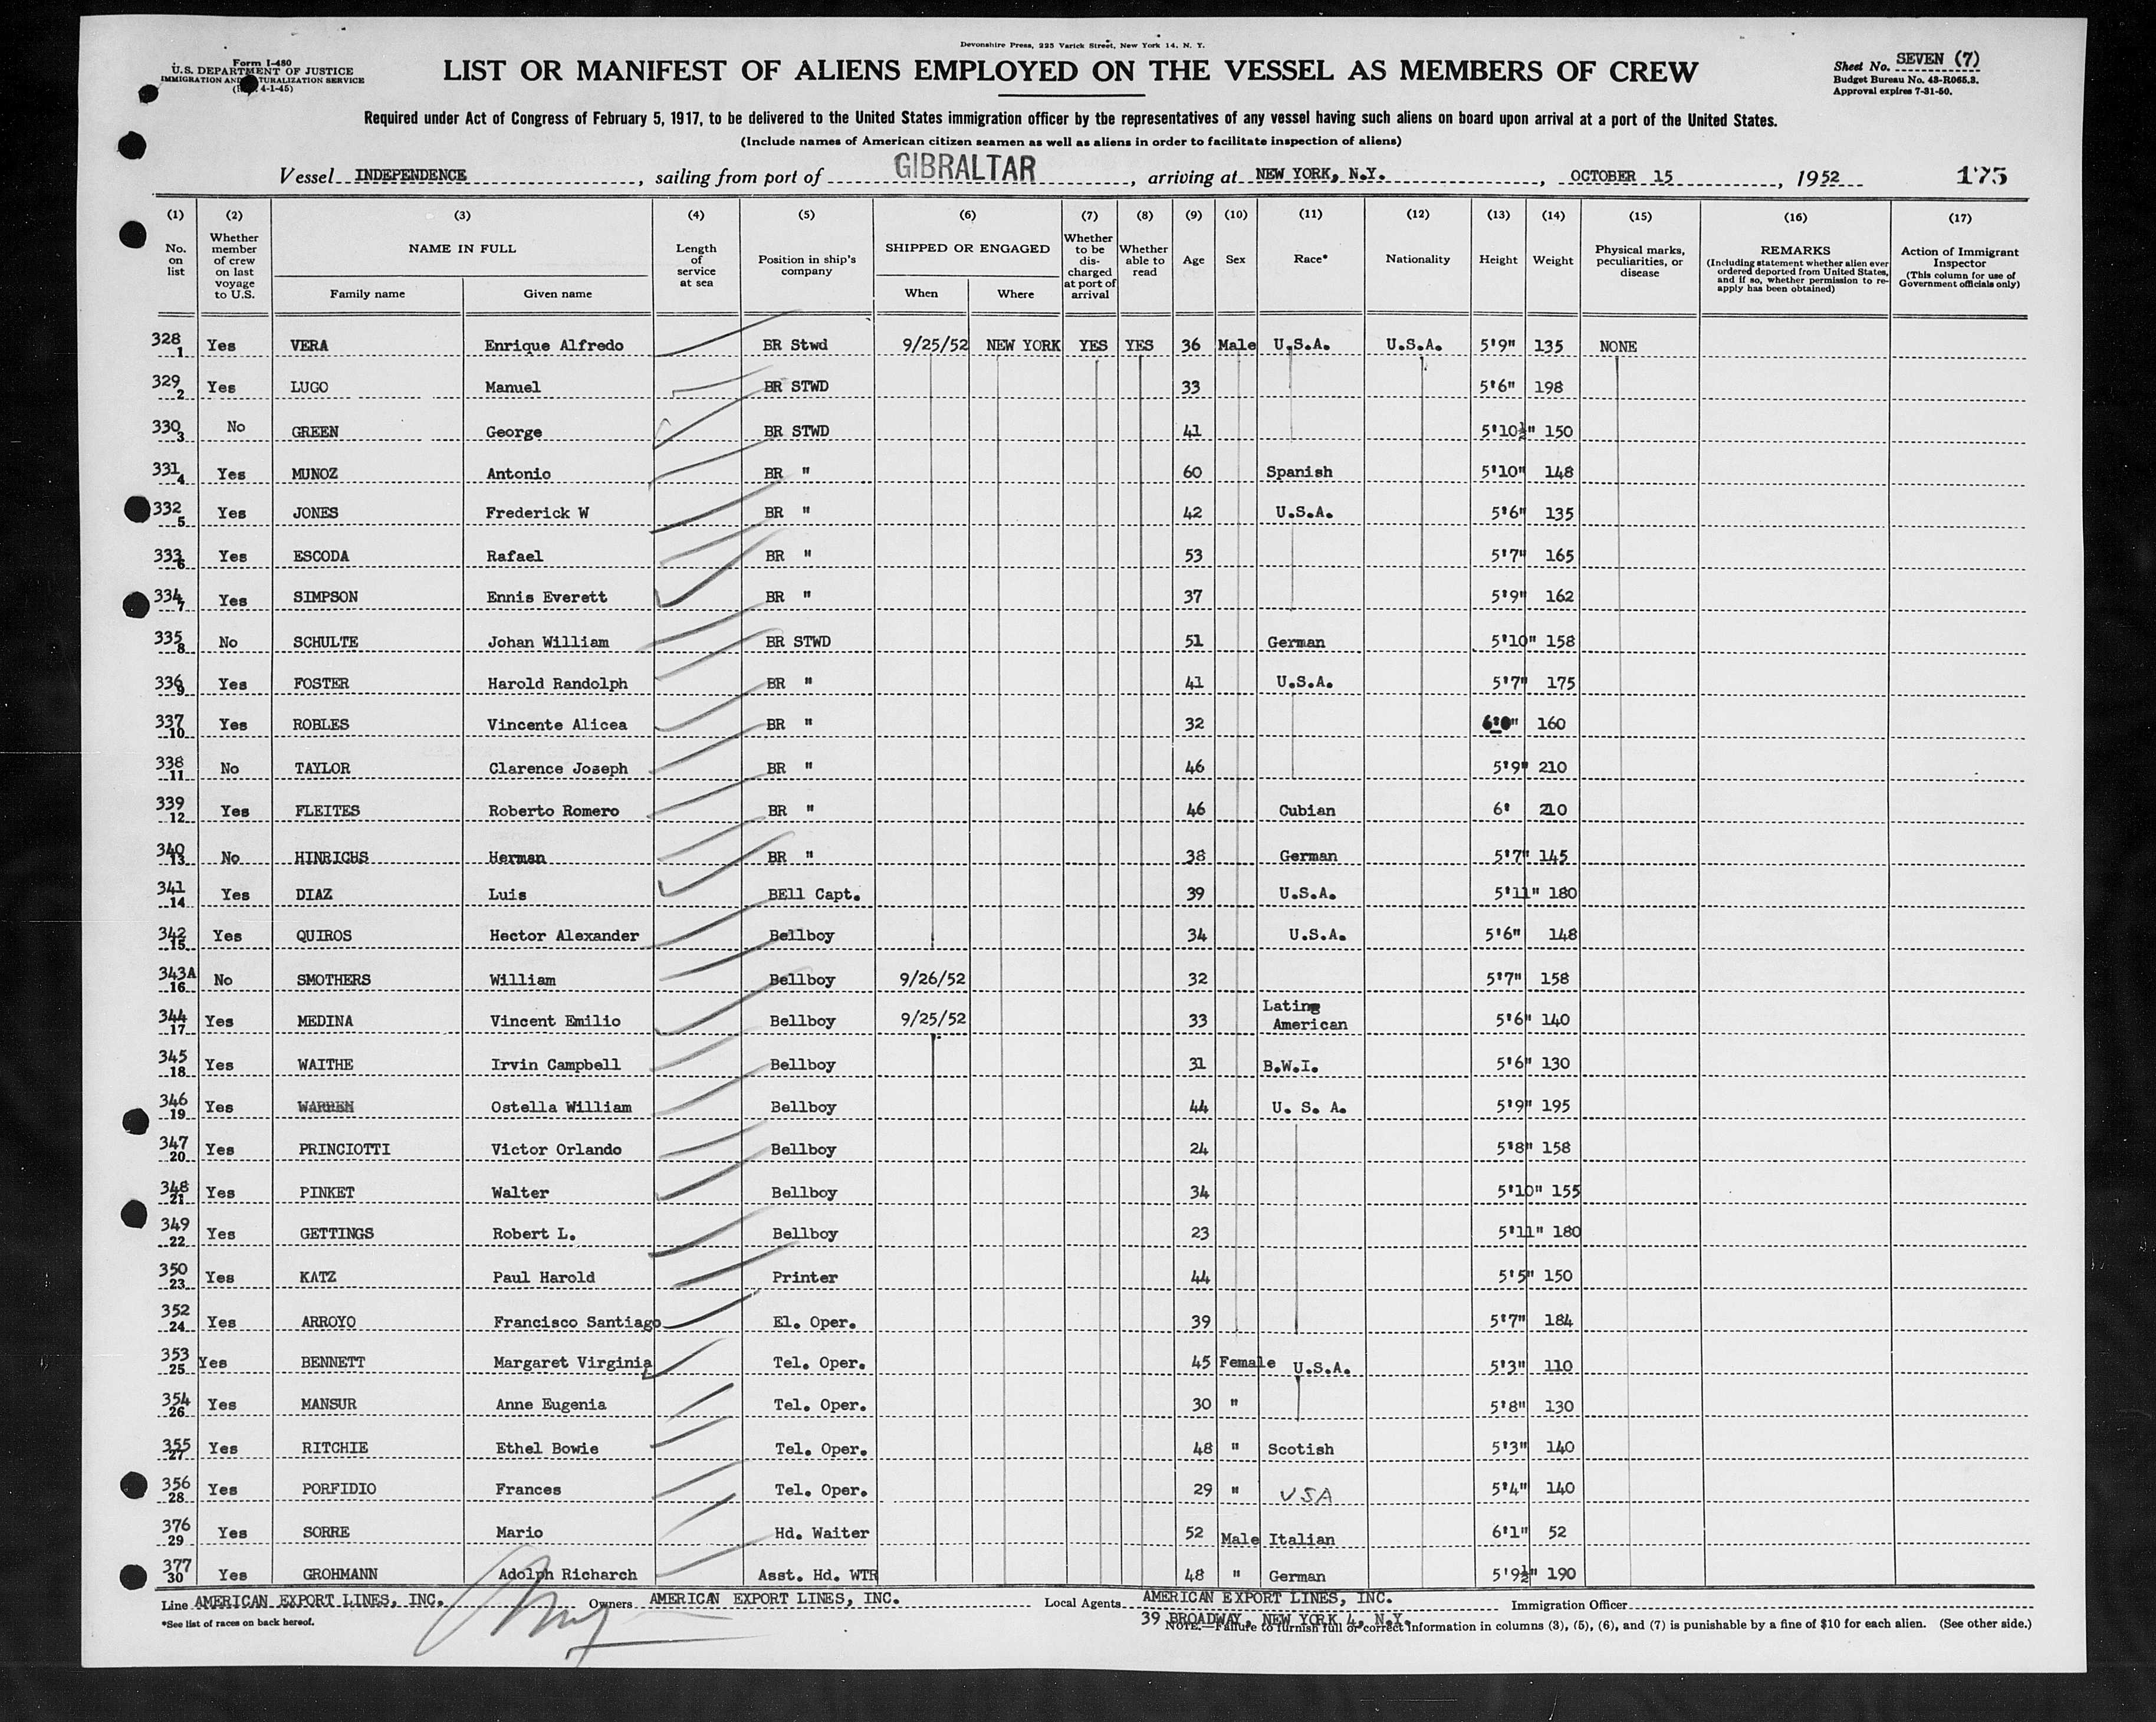 Devonshire Press, 225 Varick Street, New York 14, N. Y.
Form I-480
U.S. DEPARTMENT OF JUSTICE
IMMIGRATION AND NATURALIZATION SERVICE
4-1-45)
LIST OR MANIFEST OF ALIENS EMPLOYED ON THE VESSEL AS MEMBERS OF CREW
Sheet No. SEVEN (7)
Budget Bureau No. 43-R065.3.
Approval expires 7-31-50.
Required under Act of Congress of February 5, 1917, to be delivered to the United States immigration officer by the representatives of any vessel having such aliens on board upon arrival at a port of the United States.
(Include names of American citizen seamen as well as aliens in order to facilitate inspection of aliens)
Vessel INDEPENDENCE, sailing from port of GIBRALTAR, arriving at NEW YORK, N.Y., OCTOBER 15, 1952 175
(1) (2) (3) (4) (5) (6) (7) (8) (9) (10) (11) (12) (13) (14) (15) (16) (17)
No. on list
Whether member of crew on last voyage to U.S.
NAME IN FULL
Family name Given name
Length of service at sea
Position in ship's company
SHIPPED OR ENGAGED
When Where
Whether to be discharged at port of arrival
Whether able to read
Age Sex Race* Nationality Height Weight
Physical marks, peculiarities, or disease
REMARKS
(Including statement whether alien ever ordered deported from United States, and if so, whether permission to re-apply has been obtained)
Action of Immigrant Inspector
(This column for use of Government officials only)
328 1 Yes VERA Enrique Alfredo BR Stwd 9/25/52 NEW YORK YES YES 36 Male U.S.A. U.S.A. 5'9" 135 NONE
329 2 Yes LUGO Manuel BR STWD 33 5'6" 198
330 3 No GREEN George BR STWD 41 5'10½" 150
331 4 Yes MUNOZ Antonio BR " 60 Spanish 5'10" 148
332 5 Yes JONES Frederick W BR " 42 U.S.A. 5'6" 135
333 6 Yes ESCODA Rafael BR " 53 5'7" 165
334 7 Yes SIMPSON Ennis Everett BR " 37 5'9" 162
335 8 No SCHULTE Johan William BR STWD 51 German 5'10" 158
336 9 Yes FOSTER Harold Randolph BR " 41 U.S.A. 5'7" 175
337 10 Yes ROBLES Vincente Alicea BR " 32 6'0" 160
338 11 No TAYLOR Clarence Joseph BR " 46 5'9" 210
339 12 Yes FLEITES Roberto Romero BR " 46 Cubian 6' 210
340 13 No HINRICHS Herman BR " 38 German 5'7" 145
341 14 Yes DIAZ Luis BEll Capt. 39 U.S.A. 5'11" 180
342 15 Yes QUIROS Hector Alexander Bellboy 34 U.S.A. 5'6" 148
343A 16 No SMOTHERS William Bellboy 9/26/52 32 5'7" 158
344 17 Yes MEDINA Vincent Emilio Bellboy 9/25/52 33 Lating American 5'6" 140
345 18 Yes WAITHE Irvin Campbell Bellboy 31 B.W.I. 5'6" 130
346 19 Yes WARREN Ostella William Bellboy 44 U. S. A. 5'9" 195
347 20 Yes PRINCIOTTI Victor Orlando Bellboy 24 5'8" 158
348 21 Yes PINKET Walter Bellboy 34 5'10" 155
349 22 Yes GETTINGS Robert L. Bellboy 23 5'11" 180
350 23 Yes KATZ Paul Harold Printer 44 5'5" 150
352 24 Yes ARROYO Francisco Santiago El. Oper. 39 5'7" 184
353 25 Yes BENNETT Margaret Virginia Tel. Oper. 45 Female U.S.A. 5'3" 110
354 26 Yes MANSUR Anne Eugenia Tel. Oper. 30 " 5'8" 130
355 27 Yes RITCHIE Ethel Bowie Tel. Oper. 48 " Scotish 5'3" 140
356 28 Yes PORFIDIO Frances Tel. Oper. 29 " USA 5'4" 140
376 29 Yes SORRE Mario Hd. Waiter 52 Male Italian 6'1" 52
377 30 Yes GROHMANN Adolph Richarch Asst. Hd. WTR 48 " German 5'9½" 190
Line AMERICAN EXPORT LINES, INC. Owners AMERICAN EXPORT LINES, INC. Local Agents AMERICAN EXPORT LINES, INC. Immigration Officer
39 BROADWAY, NEW YORK 4, N.Y.
*See list of races on back hereof.
NOTE.—Failure to furnish full or correct information in columns (3), (5), (6), and (7) is punishable by a fine of $10 for each alien. (See other side.)